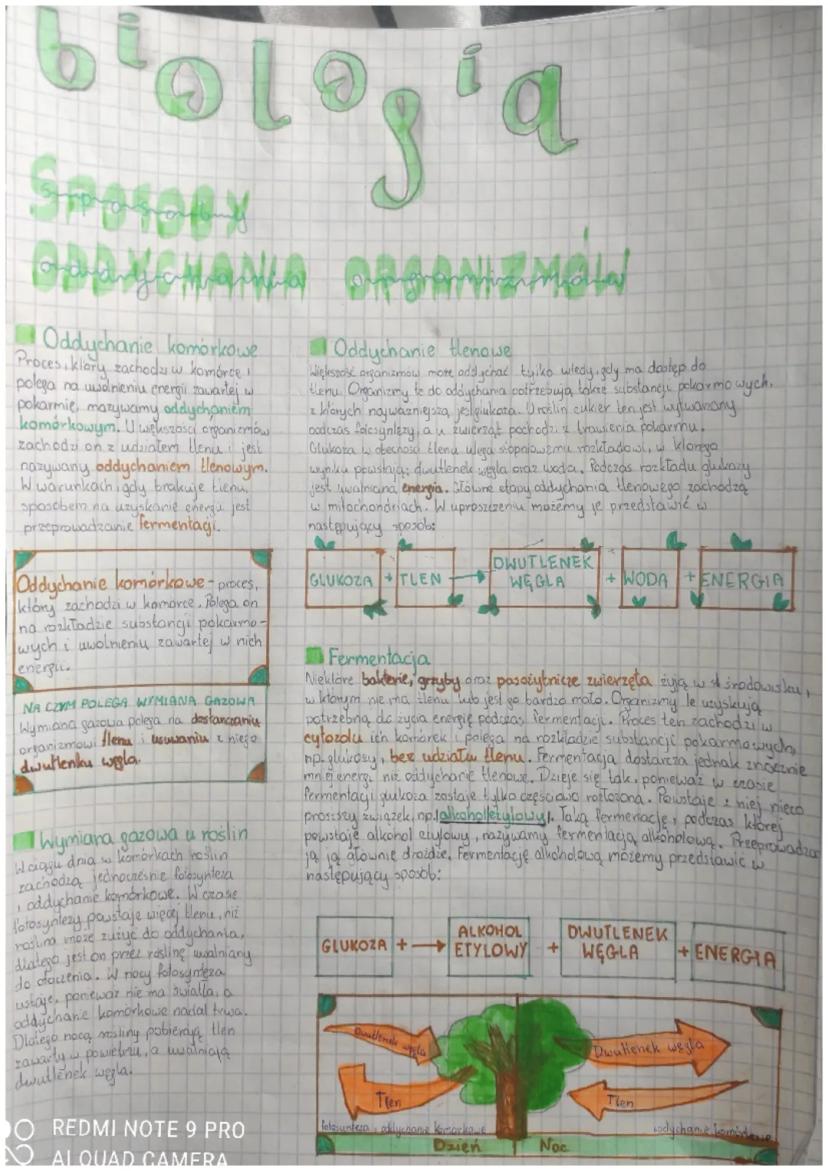 biologia
SPOSOBY
sposoby
ODDYCHANIA ORGANIZMÓW
oddychania organizmów
Oddychanie komórkowe
Proces, który zachodzi w komórce i
polega na uwolnieniu energii zawartej w
pokarmie, nazywamy oddychaniem
komórkowym. U większości organizmów
zachodzi on z udziałem tlenu i jest
nazywany oddychaniem tlenowym.
W warunkach, gdy brakuje tlenu,
sposobem na uzyskanie energii jest
przeprowadzanie fermentacji.
Oddychanie komórkowe - proces,
który zachodzi w komórce. Polega on
na rozkładzie substancji pokarmo-
wych i uwolnieniu zawartej w nich
energii.
NA CZYM POLEGA WYMIANA GAZOWA
Wymiana gazowa polega na dostarczaniu
organizmowi tlenu i usuwaniu z niego
dwutlenku węgla.
Wymiana gazowa u roślin
W ciągu dnia w komórkach roślin
zachodzą jednocześnie fotosynteza
i oddychanie komórkowe. W czasie
fotosyntezy powstaje więcej tlenu, niż
roślina może zużyć do oddychania,
dlatego jest on przez roślinę uwalniany
do otoczenia. W nocy fotosynteza
ustaje, ponieważ nie ma światła, a
oddychanie komórkowe nadal trwa.
Dlatego nocą rośliny pobierają tlen
zawarty w powietrzu, a uwalniają
dwutlenek węgla.
Oddychanie tlenowe
Większość organizmów może oddychać tylko wtedy, gdy ma dostęp do
tlenu. Organizmy te do oddychania potrzebują także substancji pokarmowych,
z których najważniejszą jest glukoza. U roślin cukier ten jest wytwarzany
podczas fotosyntezy, a u zwierząt pochodzi z trawienia pokarmu.
Glukoza w obecności tlenu ulega stopniowemu rozkładowi, w którego
wyniku powstają: dwutlenek węgla oraz woda. Podczas rozkładu glukozy
jest uwalniana energia. Główne etapy oddychania tlenowego zachodzą
w mitochondriach. W uproszczeniu możemy je przedstawić w
następujący sposób:
GLUKOZA + TLEN → DWUTLENEK WĘGLA + WODA + ENERGIA
Fermentacja
Niektóre bakterie, grzyby oraz pasożytnicze zwierzęta żyją w środowisku,
w którym nie ma tlenu lub jest go bardzo mało. Organizmy te uzyskują
potrzebną do życia energię podczas fermentacji. Proces ten zachodzi w
cytozolu ich komórek i polega na rozkładzie substancji pokarmowych,
np. glukozy, bez udziału tlenu. Fermentacja dostarcza jednak znacznie
mniej energii niż oddychanie tlenowe. Dzieje się tak, ponieważ w czasie
fermentacji glukoza zostaje tylko częściowo rozłożona. Powstaje z niej nieco
prostszy związek, np. alkohol etylowy. Taką fermentację, podczas której
powstaje alkohol etylowy, nazywamy fermentacją alkoholową. Przeprowadza
ją ją głównie drożdże. Fermentację alkoholową możemy przedstawić w
następujący sposób:
GLUKOZA + → ALKOHOL ETYLOWY + DWUTLENEK WĘGLA + ENERGIA
Dwutlenek węgla
Dwutlenek węgla
Tlen
Tlen
fotosynteza i oddychanie komórkowe
oddychanie komórkowe
Dzień Noc
REDMI NOTE 9 PRO
AI QUAD CAMERA